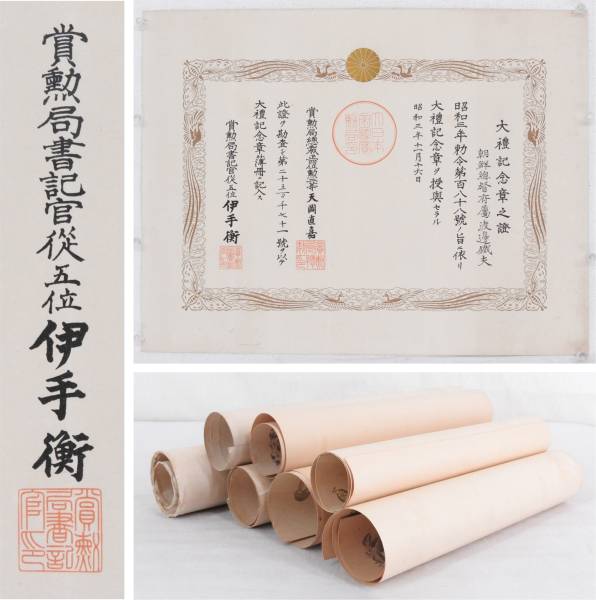 賞勲局書記官從五位伊手衡
賞勲局書記官印
大禮記念章之證
朝鮮總督府屬渡邊鐵夫
昭和三年勅令第百八十八號ノ旨ニ依リ
大禮記念章ヲ授與セラル
昭和三年十一月十六日
賞勲局總裁正四位勲二等天岡直嘉
此證ヲ勘査シ第二十三万千七十一號ヲ以テ
大禮記念章ノ簿冊ニ記入ス
賞勲局書記官從五位伊手衡